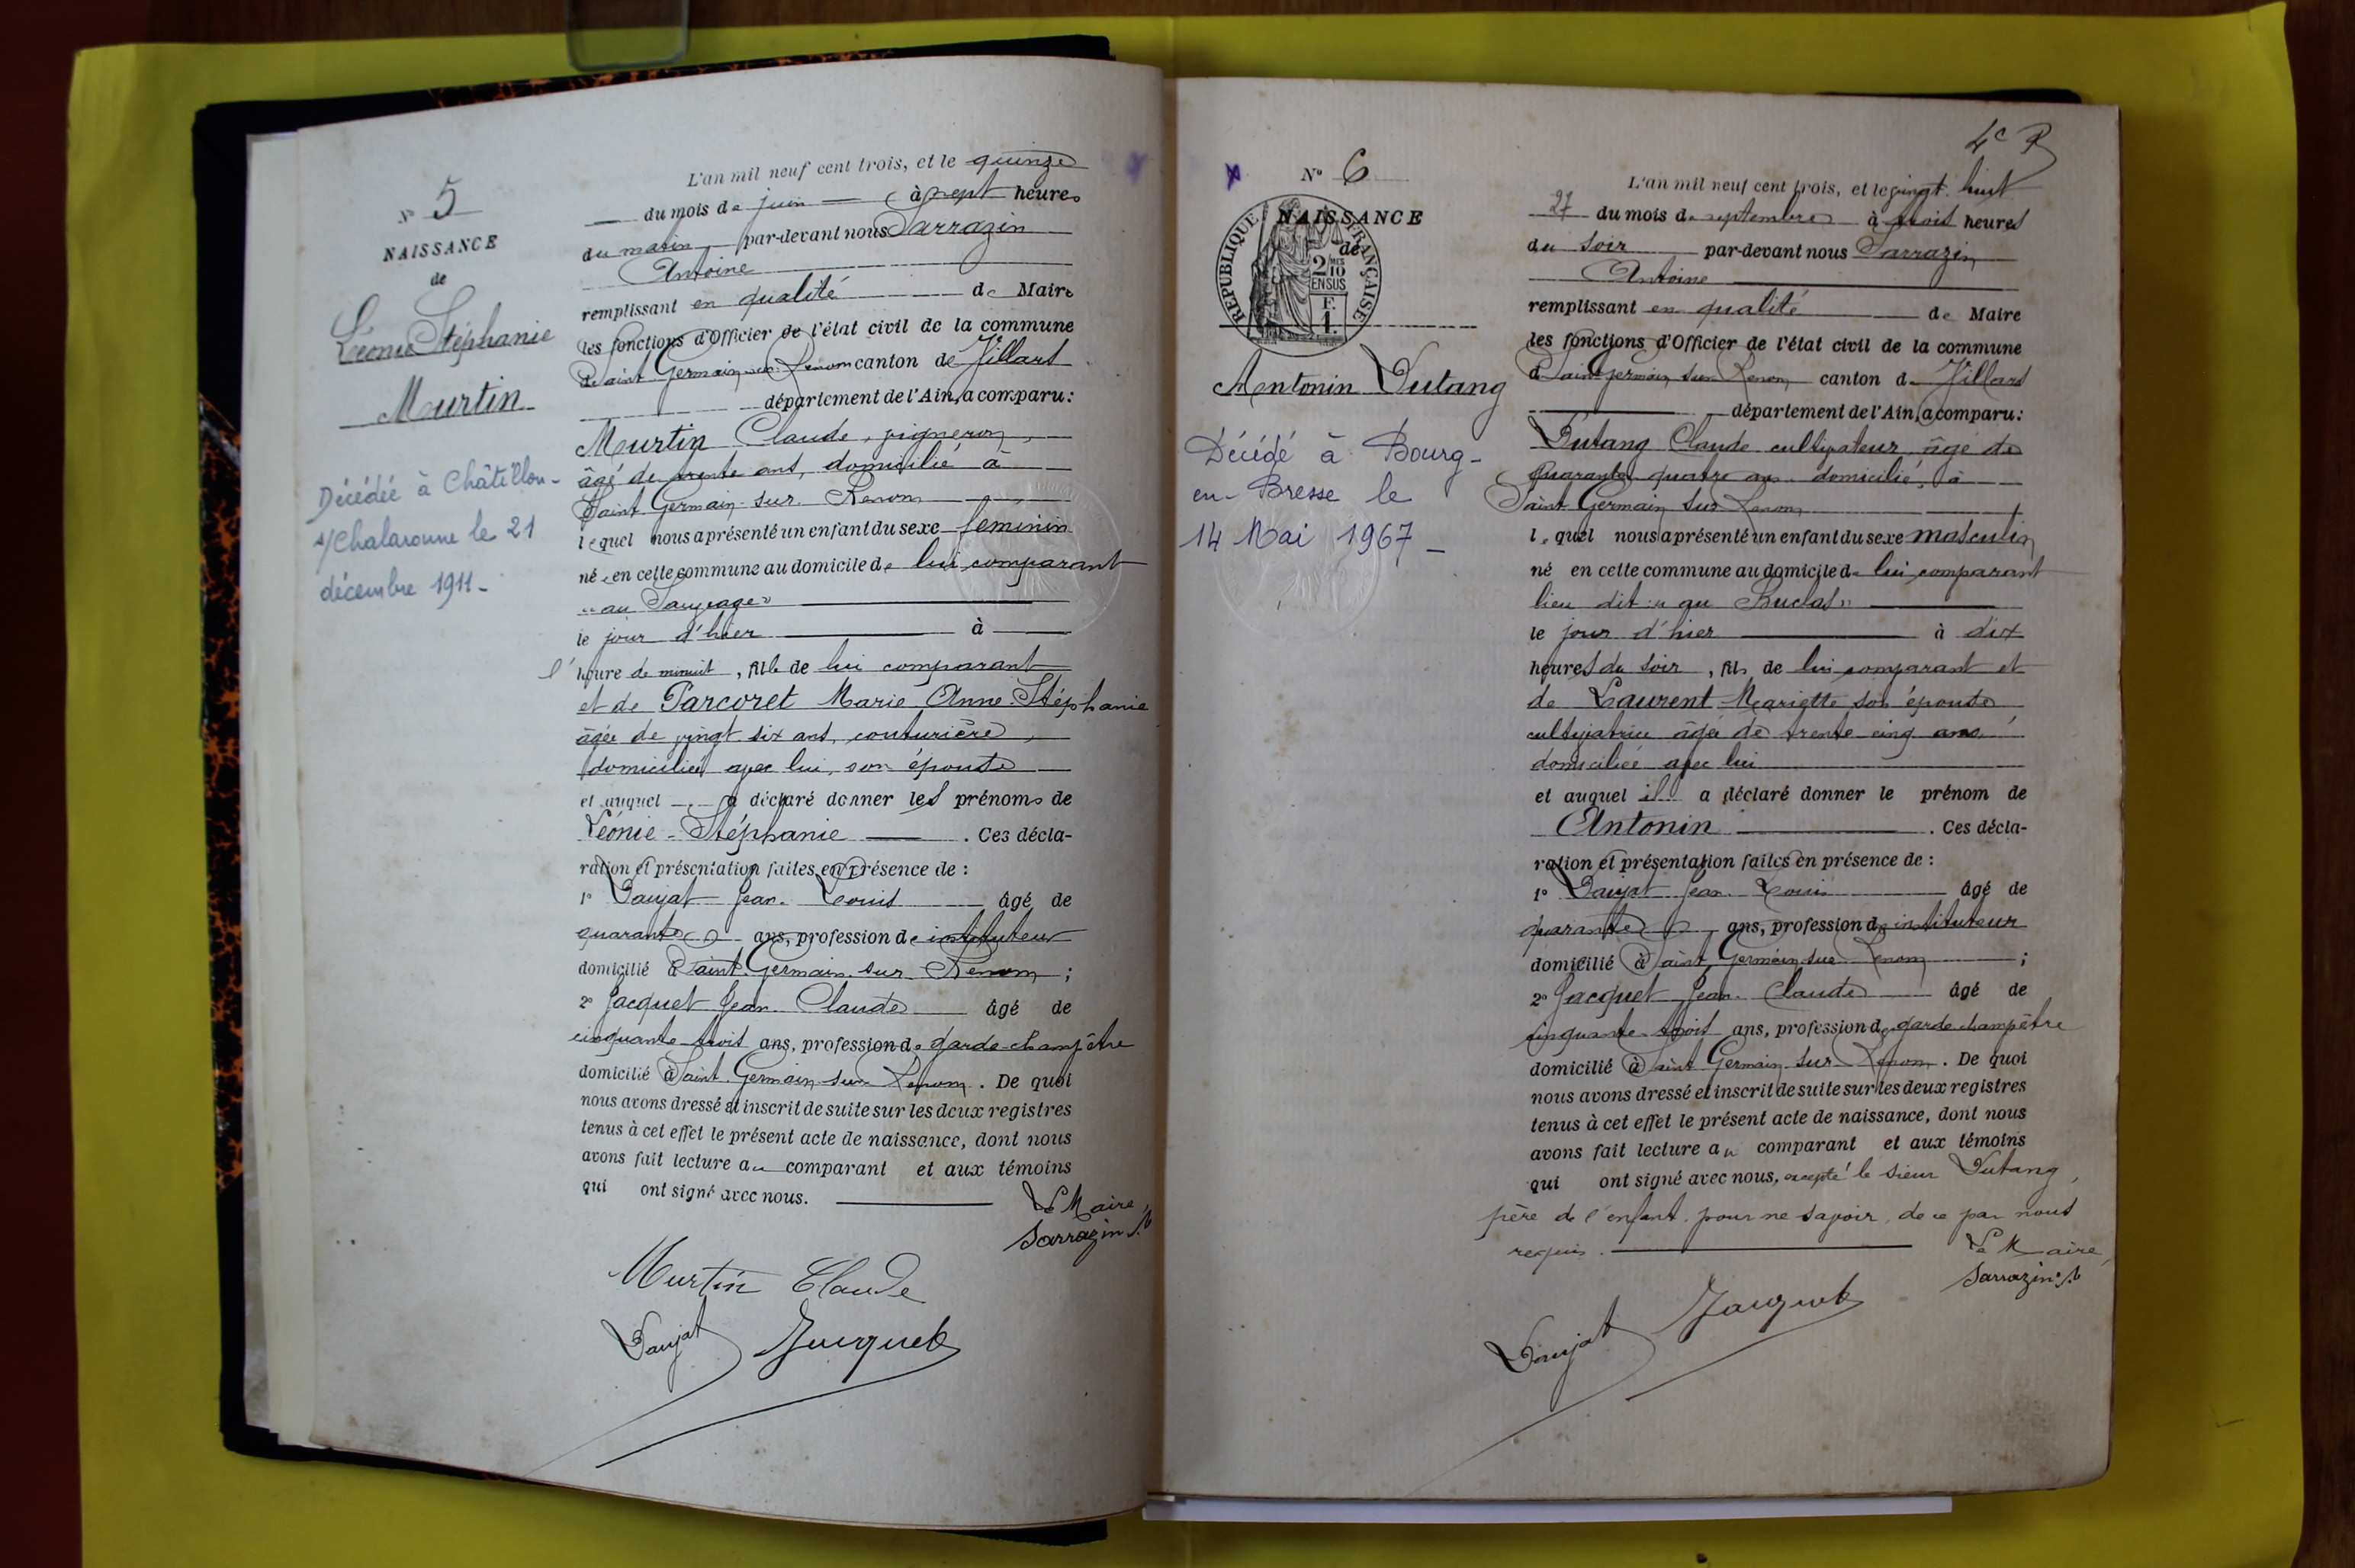 N° 5
NAISSANCE
de
Léonie Stéphanie
Murtin
Décédée à Châtillon-
s/Chalaronne le 21
décembre 1911-
L'an mil neuf cent trois, et le quinze
du mois de juin à sept heures
du matin par-devant nous Sarrazin
Antoine
remplissant en qualité de Maire
les fonctions d'Officier de l'état civil de la commune
de Saint Germain sur Renom canton de Villars
département de l'Ain, a comparu:
Murtin Claude, vigneron,
âgé de trente ans, domicilié à
Saint Germain sur Renom
lequel nous a présenté un enfant du sexe féminin
née en cette commune au domicile de lui comparant
"au Sauvage"
le jour d'hier à
l'heure de minuit, fille de lui comparant
et de Parcoret Marie Anne Stéphanie
âgée de vingt six ans, couturière,
domiciliée avec lui, son épouse
et auquel a déclaré donner les prénoms de
Léonie-Stéphanie. Ces décla-
ration et présentation faites en présence de:
1° Daujat Jean-Louis âgé de
quarante ans, profession de instituteur
domicilié à Saint Germain sur Renom;
2° Jacquet Jean-Claude âgé de
cinquante trois ans, profession de garde-champêtre
domicilié à Saint Germain sur Renom. De quoi
nous avons dressé et inscrit de suite sur les deux registres
tenus à cet effet le présent acte de naissance, dont nous
avons fait lecture au comparant et aux témoins
qui ont signé avec nous.
Le Maire,
Sarrazin A.
Murtin Claude
Daujat Jacquet
4e R
N° 6
NAISSANCE
de
REPUBLIQUE FRANÇAISE
2 MES
10
EN SUS
F.
1.
Antonin Dutang
Décédé à Bourg-
en-Bresse le
14 Mai 1967-
L'an mil neuf cent trois, et le vingt huit
27 du mois de septembre à trois heures
du soir par-devant nous Sarrazin
Antoine
remplissant en qualité de Maire
les fonctions d'Officier de l'état civil de la commune
d Saint Germain sur Renom canton de Villars
département de l'Ain, a comparu:
Dutang Claude cultivateur, âgé de
quarante quatre ans domicilié, à
Saint Germain sur Renom
lequel nous a présenté un enfant du sexe masculin
né en cette commune au domicile de lui comparant
lieu dit: "au
le jour d'hier à dix
heures du soir, fils de lui comparant et
de Laurent Mariette son épouse
cultivatrice âgée de trente cinq ans
domiciliée avec lui
et auquel il a déclaré donner le prénom de
Antonin. Ces décla-
ration et présentation faites en présence de:
1° Daujat Jean-Louis âgé de
quarante ans, profession de instituteur
domicilié à Saint Germain sur Renom;
2° Jacquet Jean-Claude âgé de
cinquante trois ans, profession de garde-champêtre
domicilié à Saint Germain sur Renom. De quoi
nous avons dressé et inscrit de suite sur les deux registres
tenus à cet effet le présent acte de naissance, dont nous
avons fait lecture au comparant et aux témoins
qui ont signé avec nous, excepté le sieur Dutang,
père de l'enfant, pour ne savoir, de ce par nous
requis.
Le Maire,
Sarrazin A.
Daujat Jacquet